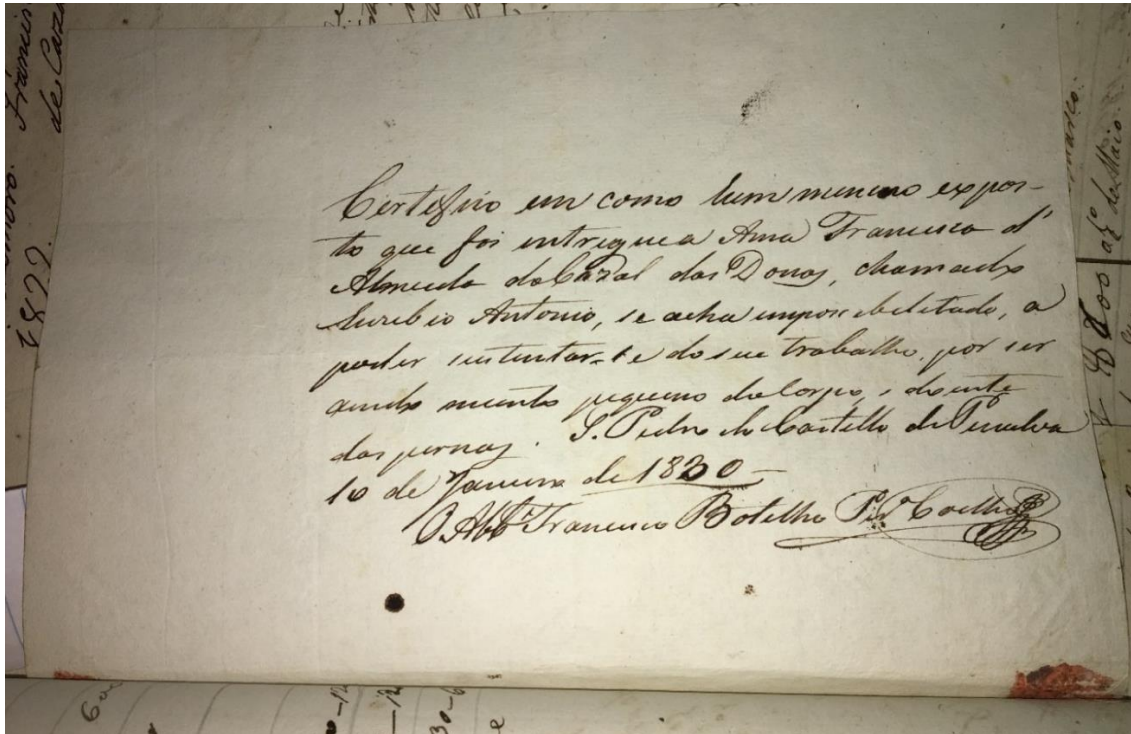 Certefico em como hum menino expos-
to que foi entregue a Anna Francisca d'
Almeida do Cazal das Donas, chamado
Euzebio Antonio, se acha imposibelitado, a
poder sustentar-se do seu trabalho, por ser
ainda muito pequeno do Corpo, e doente
das pernas. S. Pedro do Castello de Penalva
10 de Janeiro de 1830
O Abb.e Francisco Botelho Coelho
de Maio
1822.